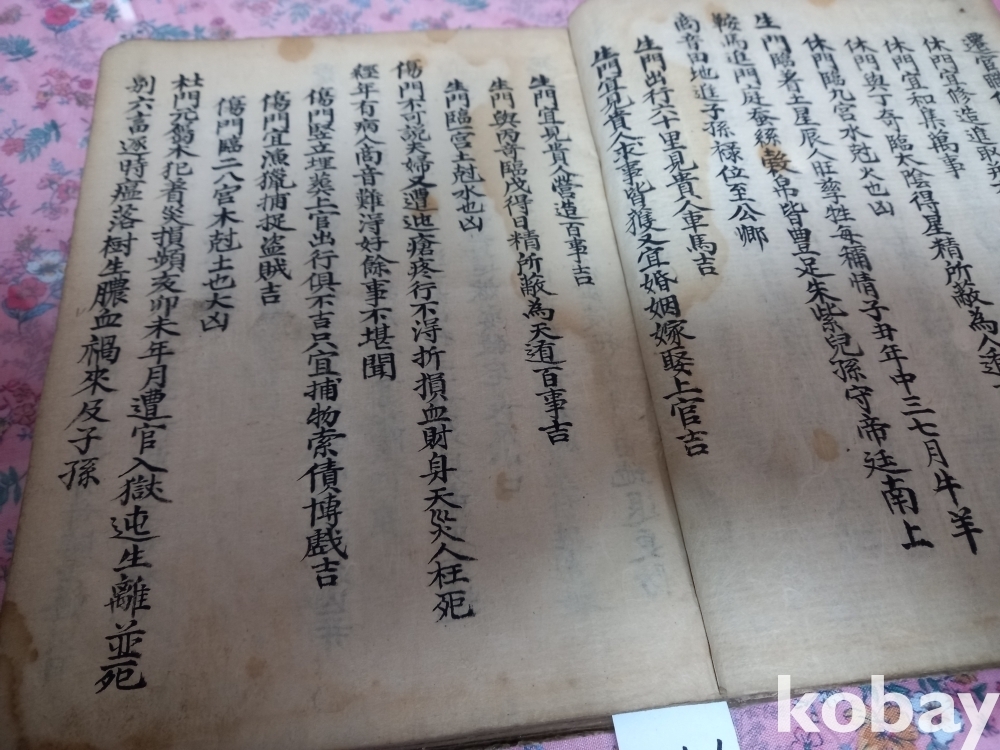 遷官職
休門宜修造進取
休門宜和集萬事
休門與丁奇臨太陰得星精所蔽為人遁
休門臨九宮水尅火也凶
生門臨著土星辰人旺孳牲每稱情子丑年中三七月牛羊
鞍馬進門庭蚕絲穀帛皆豊足朱紫兒孫守帝廷南上
商音田地進子孫祿位至公卿
生門出行六十里見貴人車馬吉
生門宜見貴人求事皆獲又宜婚姻嫁娶上官吉
生門宜見貴人營造百事吉
生門與丙奇臨戊得日精所蔽為天遁百事吉
生門臨宮土尅水也凶
傷門不可説夫婦又遭迍瘡疼行不得折損血財身天災人枉死
經年有病人商音難淂好餘事不堪聞
傷門竪立埋葬上官出行俱不吉只宜捕物索債博戲吉
傷門宜漁獵捕捉盜賊吉
傷門臨二八宮木尅土也大凶
杜門元
木犯者災損頻亥卯未年月遭官入獄迍生離並死
別六畜逐時瘟落樹生膿血禍來及子孫
kobay